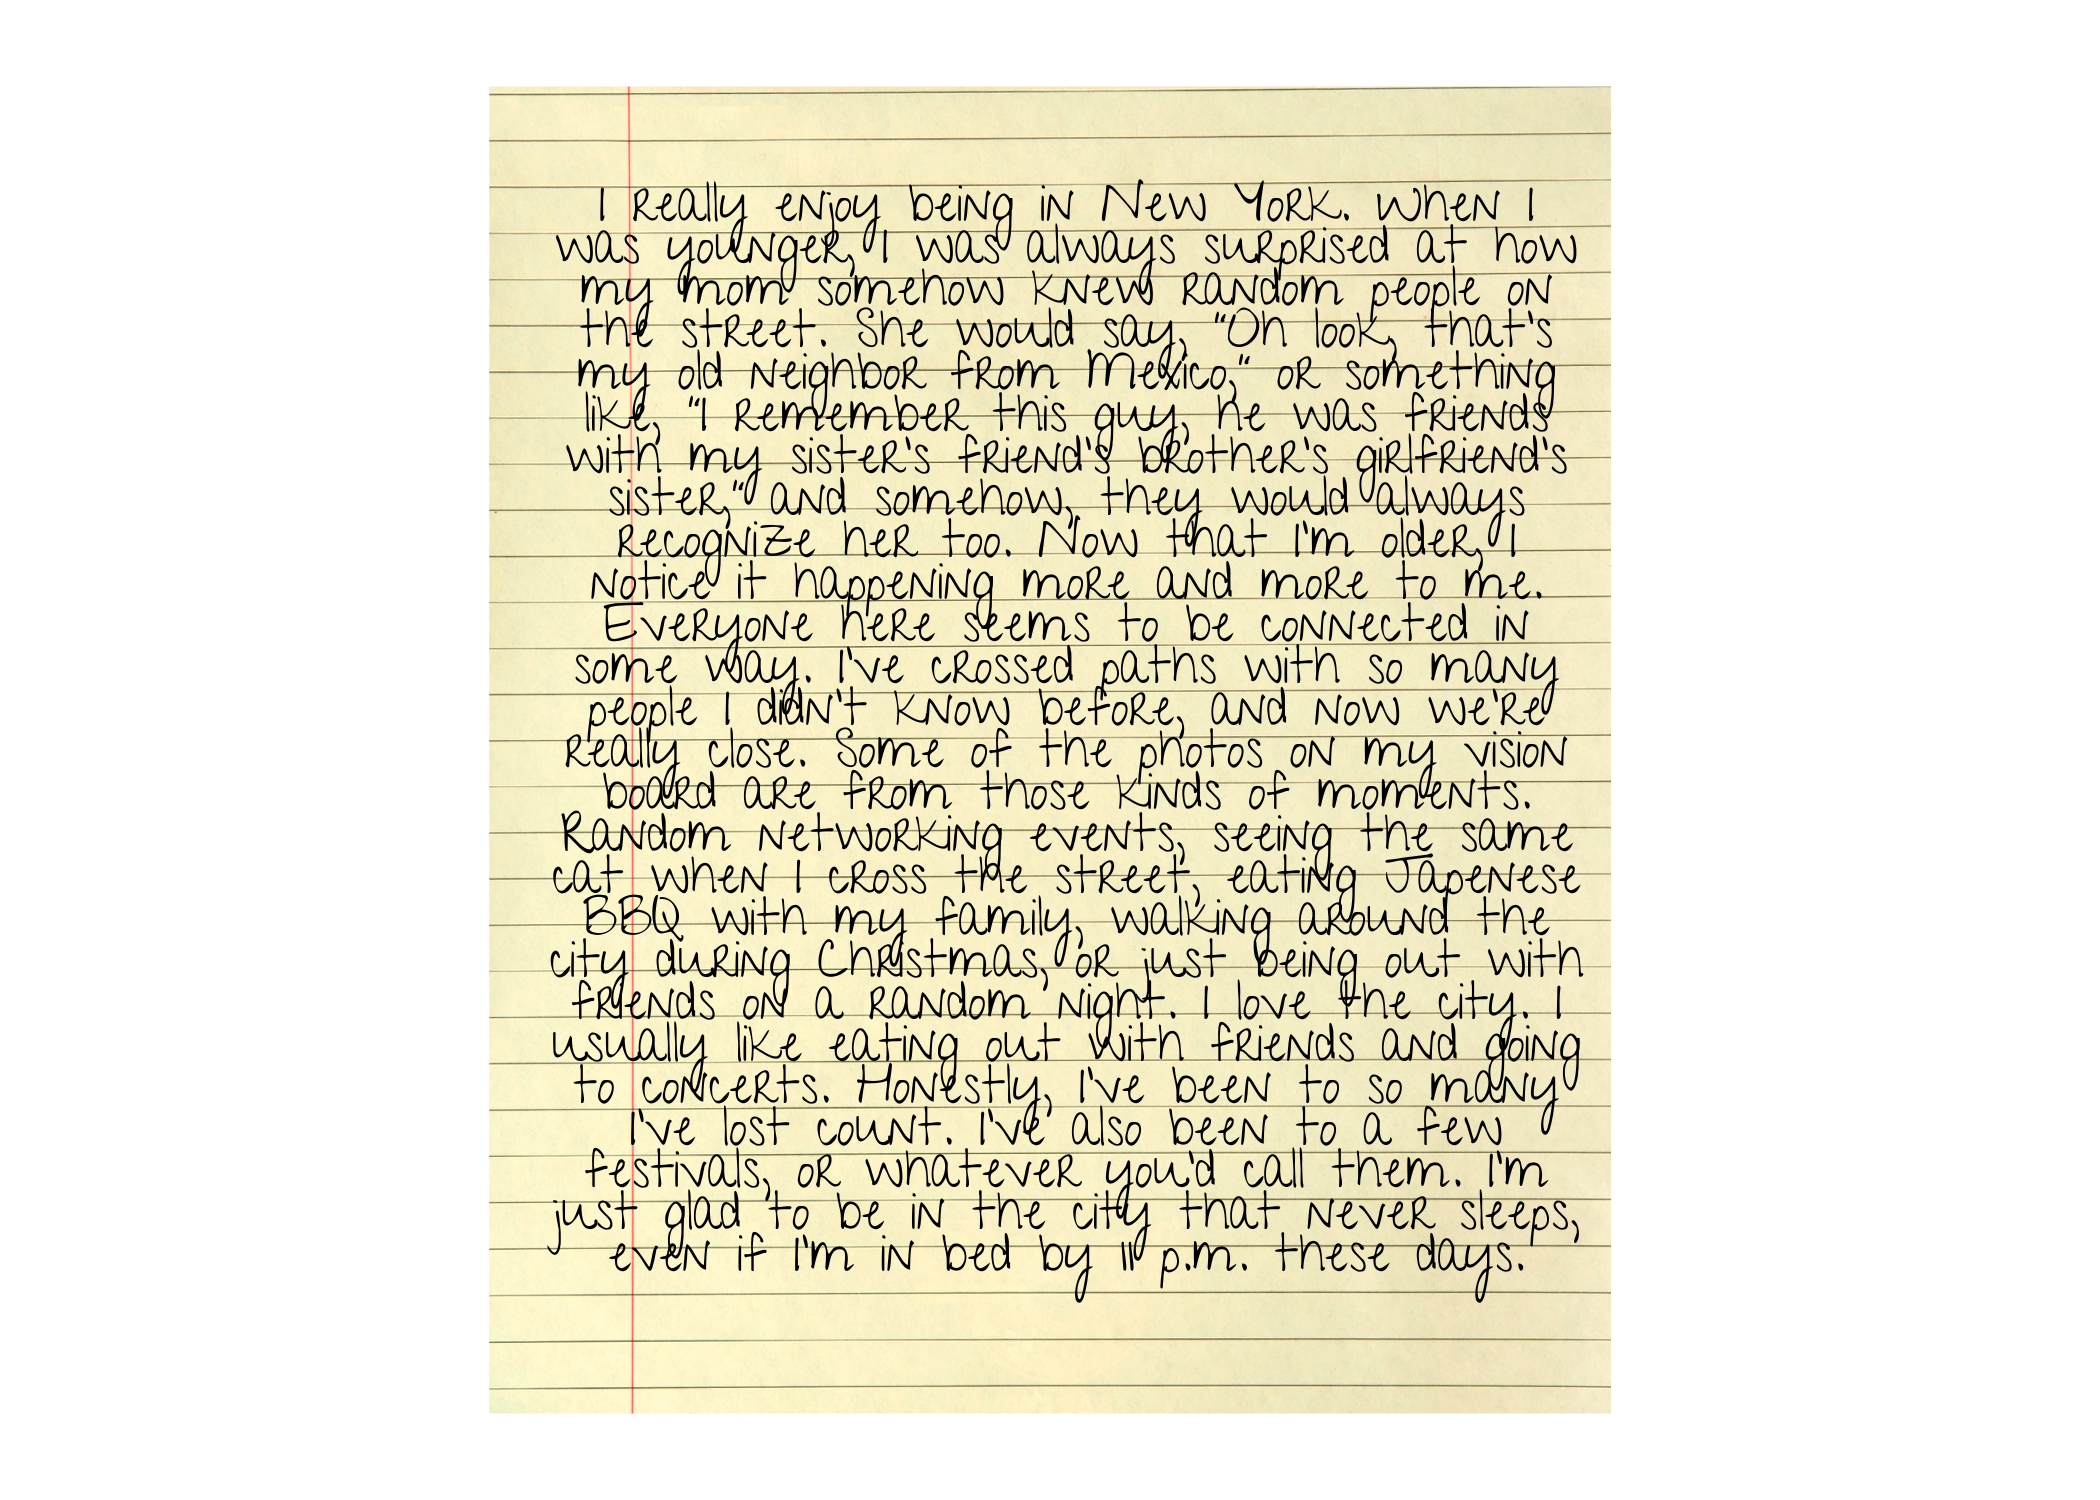 I really enjoy being in New York. When I
was younger, I was always surprised at how
my mom somehow knew random people on
the street. She would say, "Oh look, that's
my old neighbor from Mexico," or something
like, "I remember this guy, he was friends
with my sister's friend's brother's girlfriend's
sister," and somehow, they would always
recognize her too. Now that I'm older, I
notice it happening more and more to me.
Everyone here seems to be connected in
some way. I've crossed paths with so many
people I didn't know before, and now we're
really close. Some of the photos on my vision
board are from those kinds of moments.
Random networking events, seeing the same
cat when I cross the street, eating Japenese
BBQ with my family, walking around the
city during Christmas, or just being out with
friends on a random night. I love the city. I
usually like eating out with friends and going
to concerts. Honestly, I've been to so many
I've lost count. I've also been to a few
festivals, or whatever you'd call them. I'm
just glad to be in the city that never sleeps,
even if I'm in bed by 11 p.m. these days.